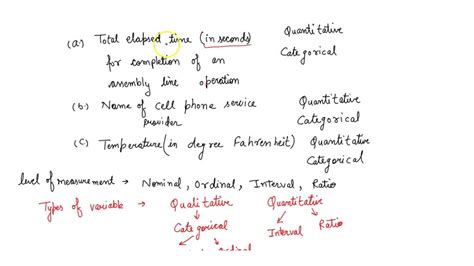 (a) Total elapsed time (in seconds) Quantitative
for completion of an Categorical
assembly line operation
(b) Name of cell phone service Quantitative
provider Categorical
(C) Temperature (in degree Fahrenheit) Quantitative
Categorical
level of measurement → Nominal, Ordinal, Interval, Ratio
Types of variable → Qualitative Quantitative
Categorical Interval Ratio